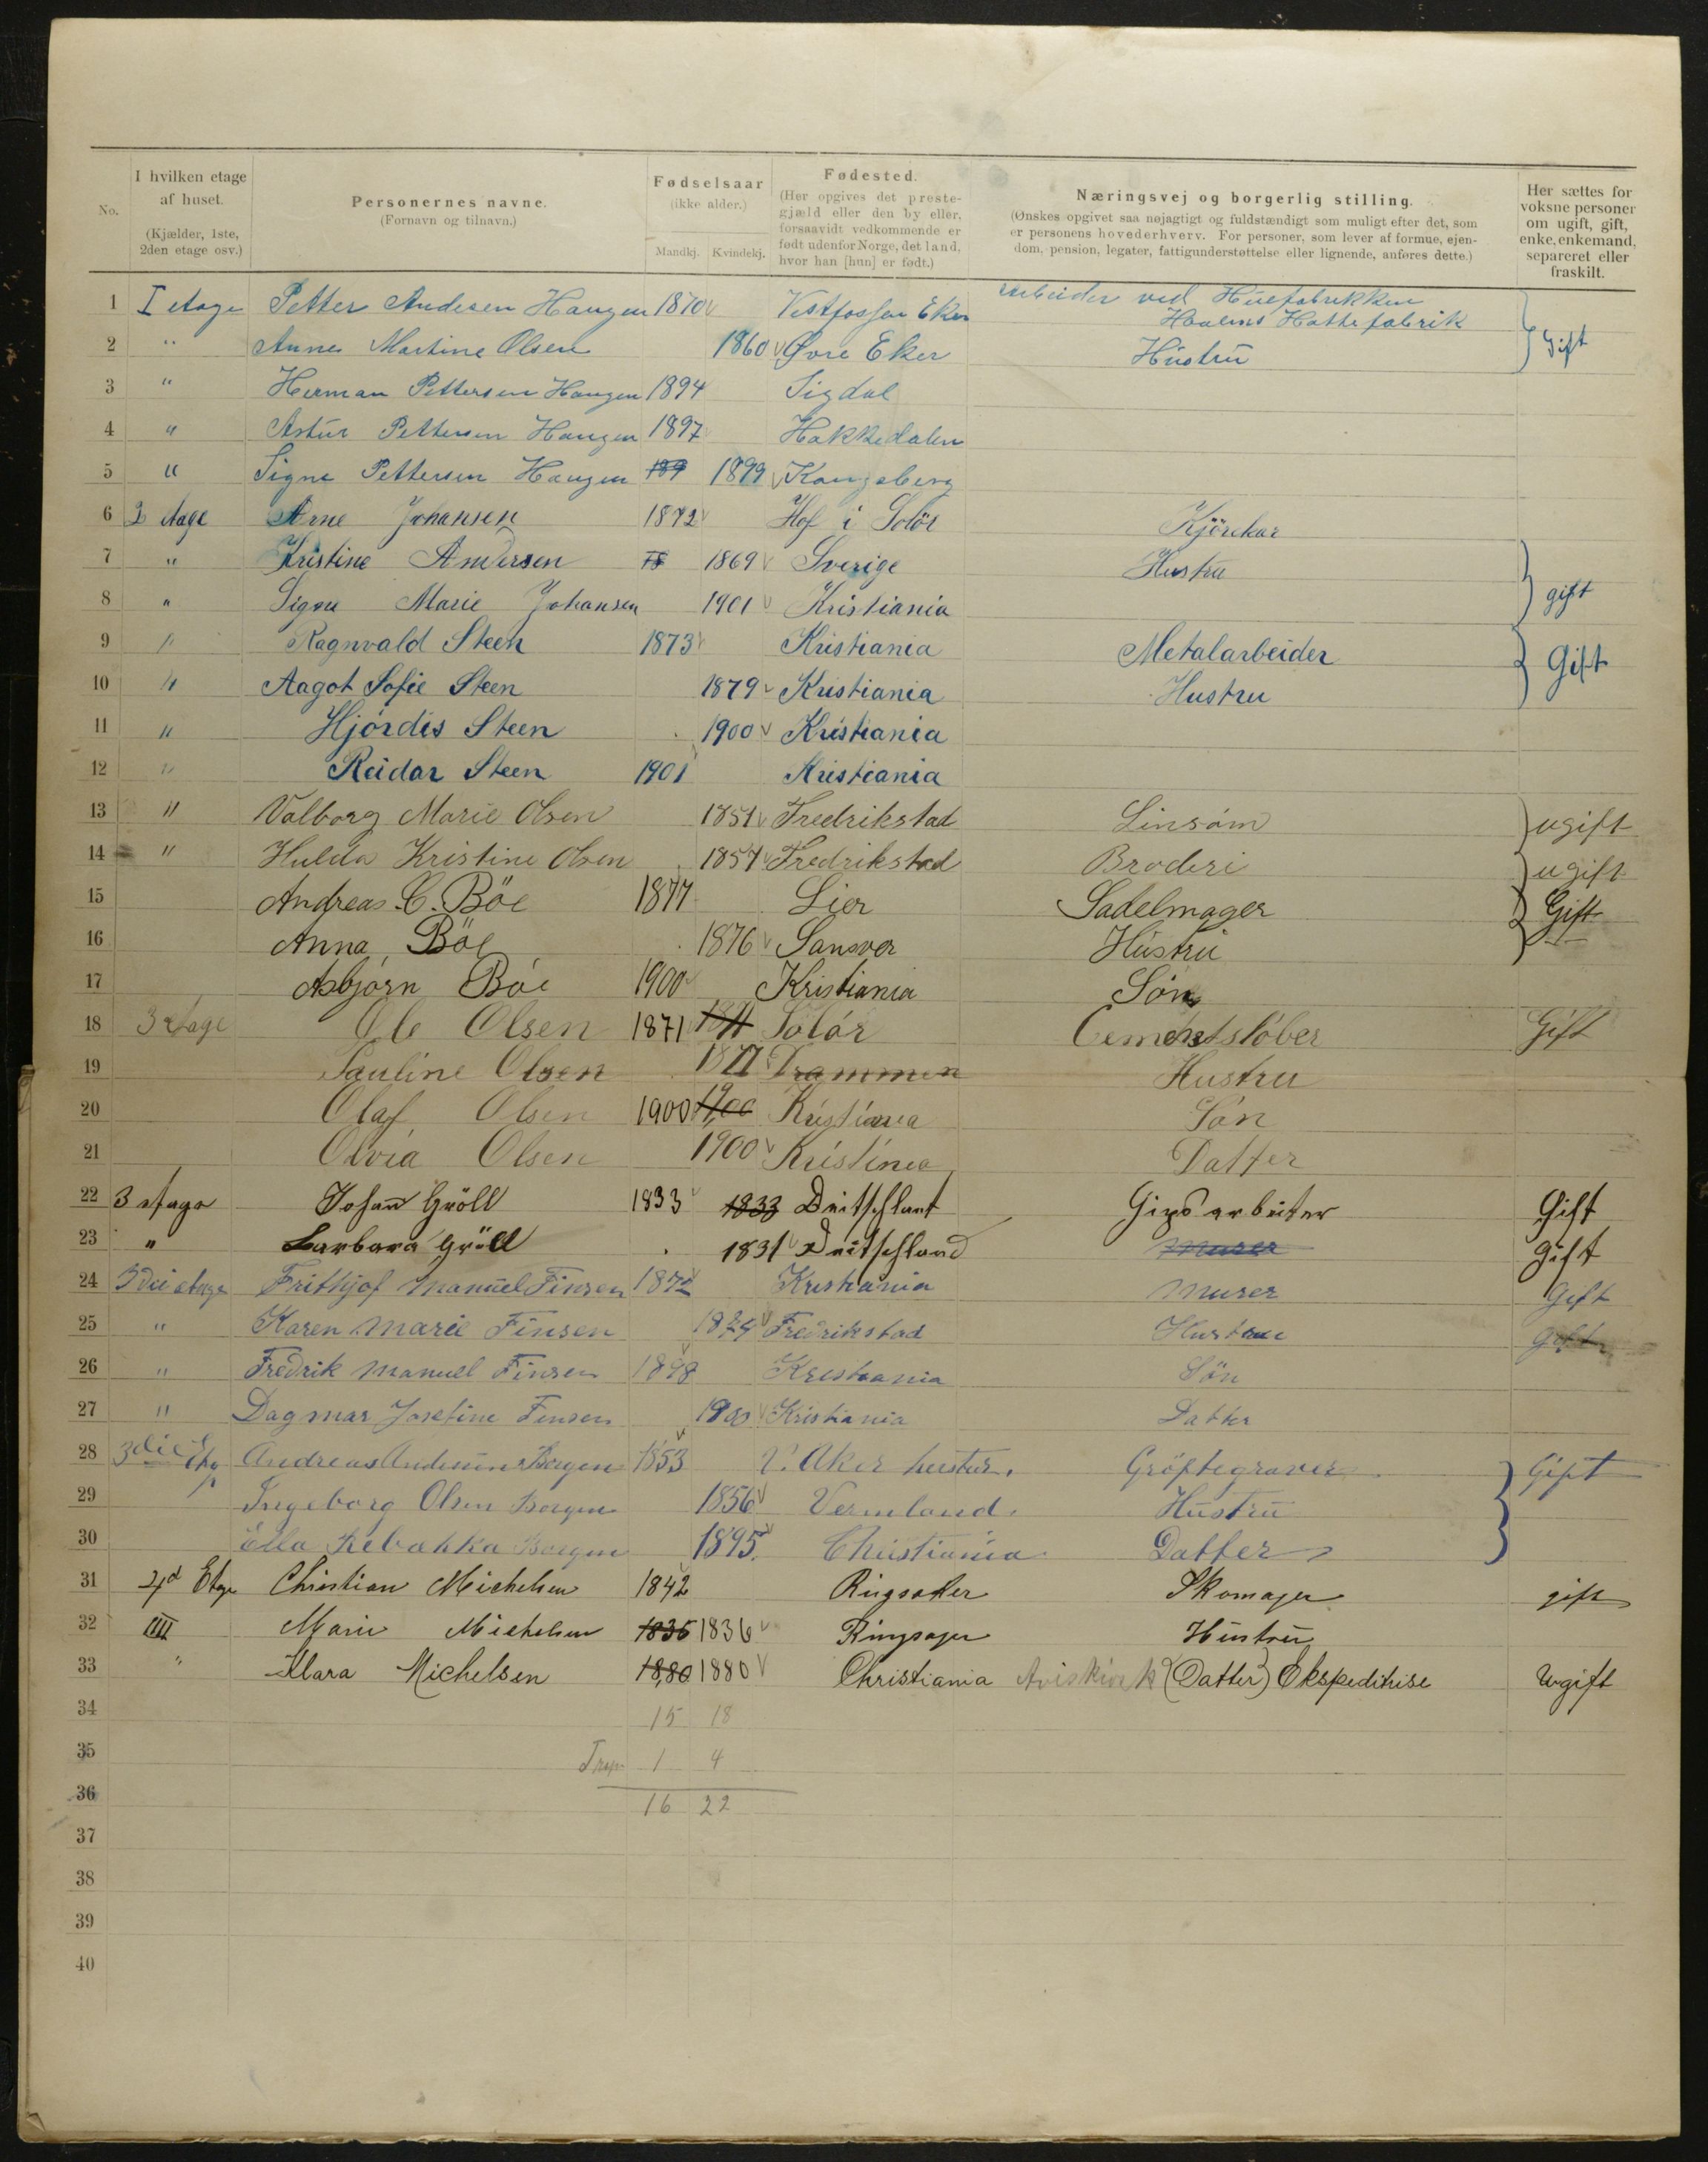 No. | I hvilken etage af huset. (Kjælder, 1ste, 2den etage osv.) | Personernes navne. (Fornavn og tilnavn.) | Fødselsaar (ikke alder.) Mandkj. Kvindekj. | Fødested. (Her opgives det prestegjæld eller den by eller, forsaavidt vedkommende er født udenfor Norge, det land, hvor han [hun] er født.) | Næringsvej og borgerlig stilling. (Ønskes opgivet saa nøjagtigt og fuldstændigt som muligt efter det, som er personens hovederhverv. For personer, som lever af formue, ejendom, pension, legater, fattigunderstøttelse eller lignende, anføres dette.) | Her sættes for voksne personer om ugift, gift, enke, enkemand, separeret eller fraskilt.
1 I etage Petter Andesen Haugen 1870 Vestfossen Eker arbeider ved Huefabrikken Haalens Hattefabrik
2 " Anne Martine Olsen 1860 Øvre Eker Hustru Gift
3 " Herman Pettersen Haugen 1894 Sigdal
4 " Astur Pettersen Haugen 1897 Hakkedalen
5 " Signe Pettersen Haugen 189 1899 Kongsberg
6 2 etage Arne Johansen 1872 Hof i Solör Kjörekar
7 " Kristine Andersen 18 1869 Sverige Hustru
8 " Signe Marie Johansen 1901 Kristiania gift
9 " Ragnvald Steen 1873 Kristiania Metalarbeider Gift
10 " Aagot Sofie Steen 1879 Kristiania Hustru
11 " Hjørdis Steen 1900 Kristiania
12 " Reidar Steen 1901 Kristiania
13 " Valborg Marie Olsen 1851 Fredrikstad Linsöm ugift
14 " Hulda Kristine Olsen 1857 Fredrikstad Broderi ugift
15 Andreas C. Böe 1877 Lier Sadelmager Gift
16 Anna Böe 1876 Sansver Hustru
17 Asbjørn Böe 1900 Kristiania Søn
18 3 etage Ole Olsen 1871 1871 Solør Cementstöber Gift
19 Pauline Olsen 1877 Drammen Hustru
20 Olaf Olsen 1900 1900 Kristiania Søn
21 Olvia Olsen 1900 Kristinea Datter
22 3 etage Johan Gröll 1833 1833 Deitschlant Gips arbeiter Gift
23 " Barbara Gröll 1831 Deitschland Murer Gift
24 3die etage Frithjof Manuel Finsen 1872 Kristiania Murer Gift
25 " Karen Marie Finsen 1874 Fredrikstad Hustru gift
26 " Fredrik Manuel Finsen 1898 Krestiania Sön
27 " Dagmar Josefine Finsen 1900 Kristiania Datter
28 3die Etg Andreas Andersen Borgen 1853 V. Aker Grøftegraver Gift
29 " Ingeborg Olsen Borgen 1856 Vermland. Hustru
30 Ella Rebakka Borgen 1895. Christiania Datter
31 4d Etage Christian Michelsen 1842 Ringsaker Skomager gift
32 IIII Marie Michelsen 1836 1836 Ringsager Hustru
33 " Klara Michelsen 1880 1880 Christiania Aviskiosk (Datter) Ekspeditrise Ugift
34 15 18
35 1 4
36 16 22
37
38
39
40